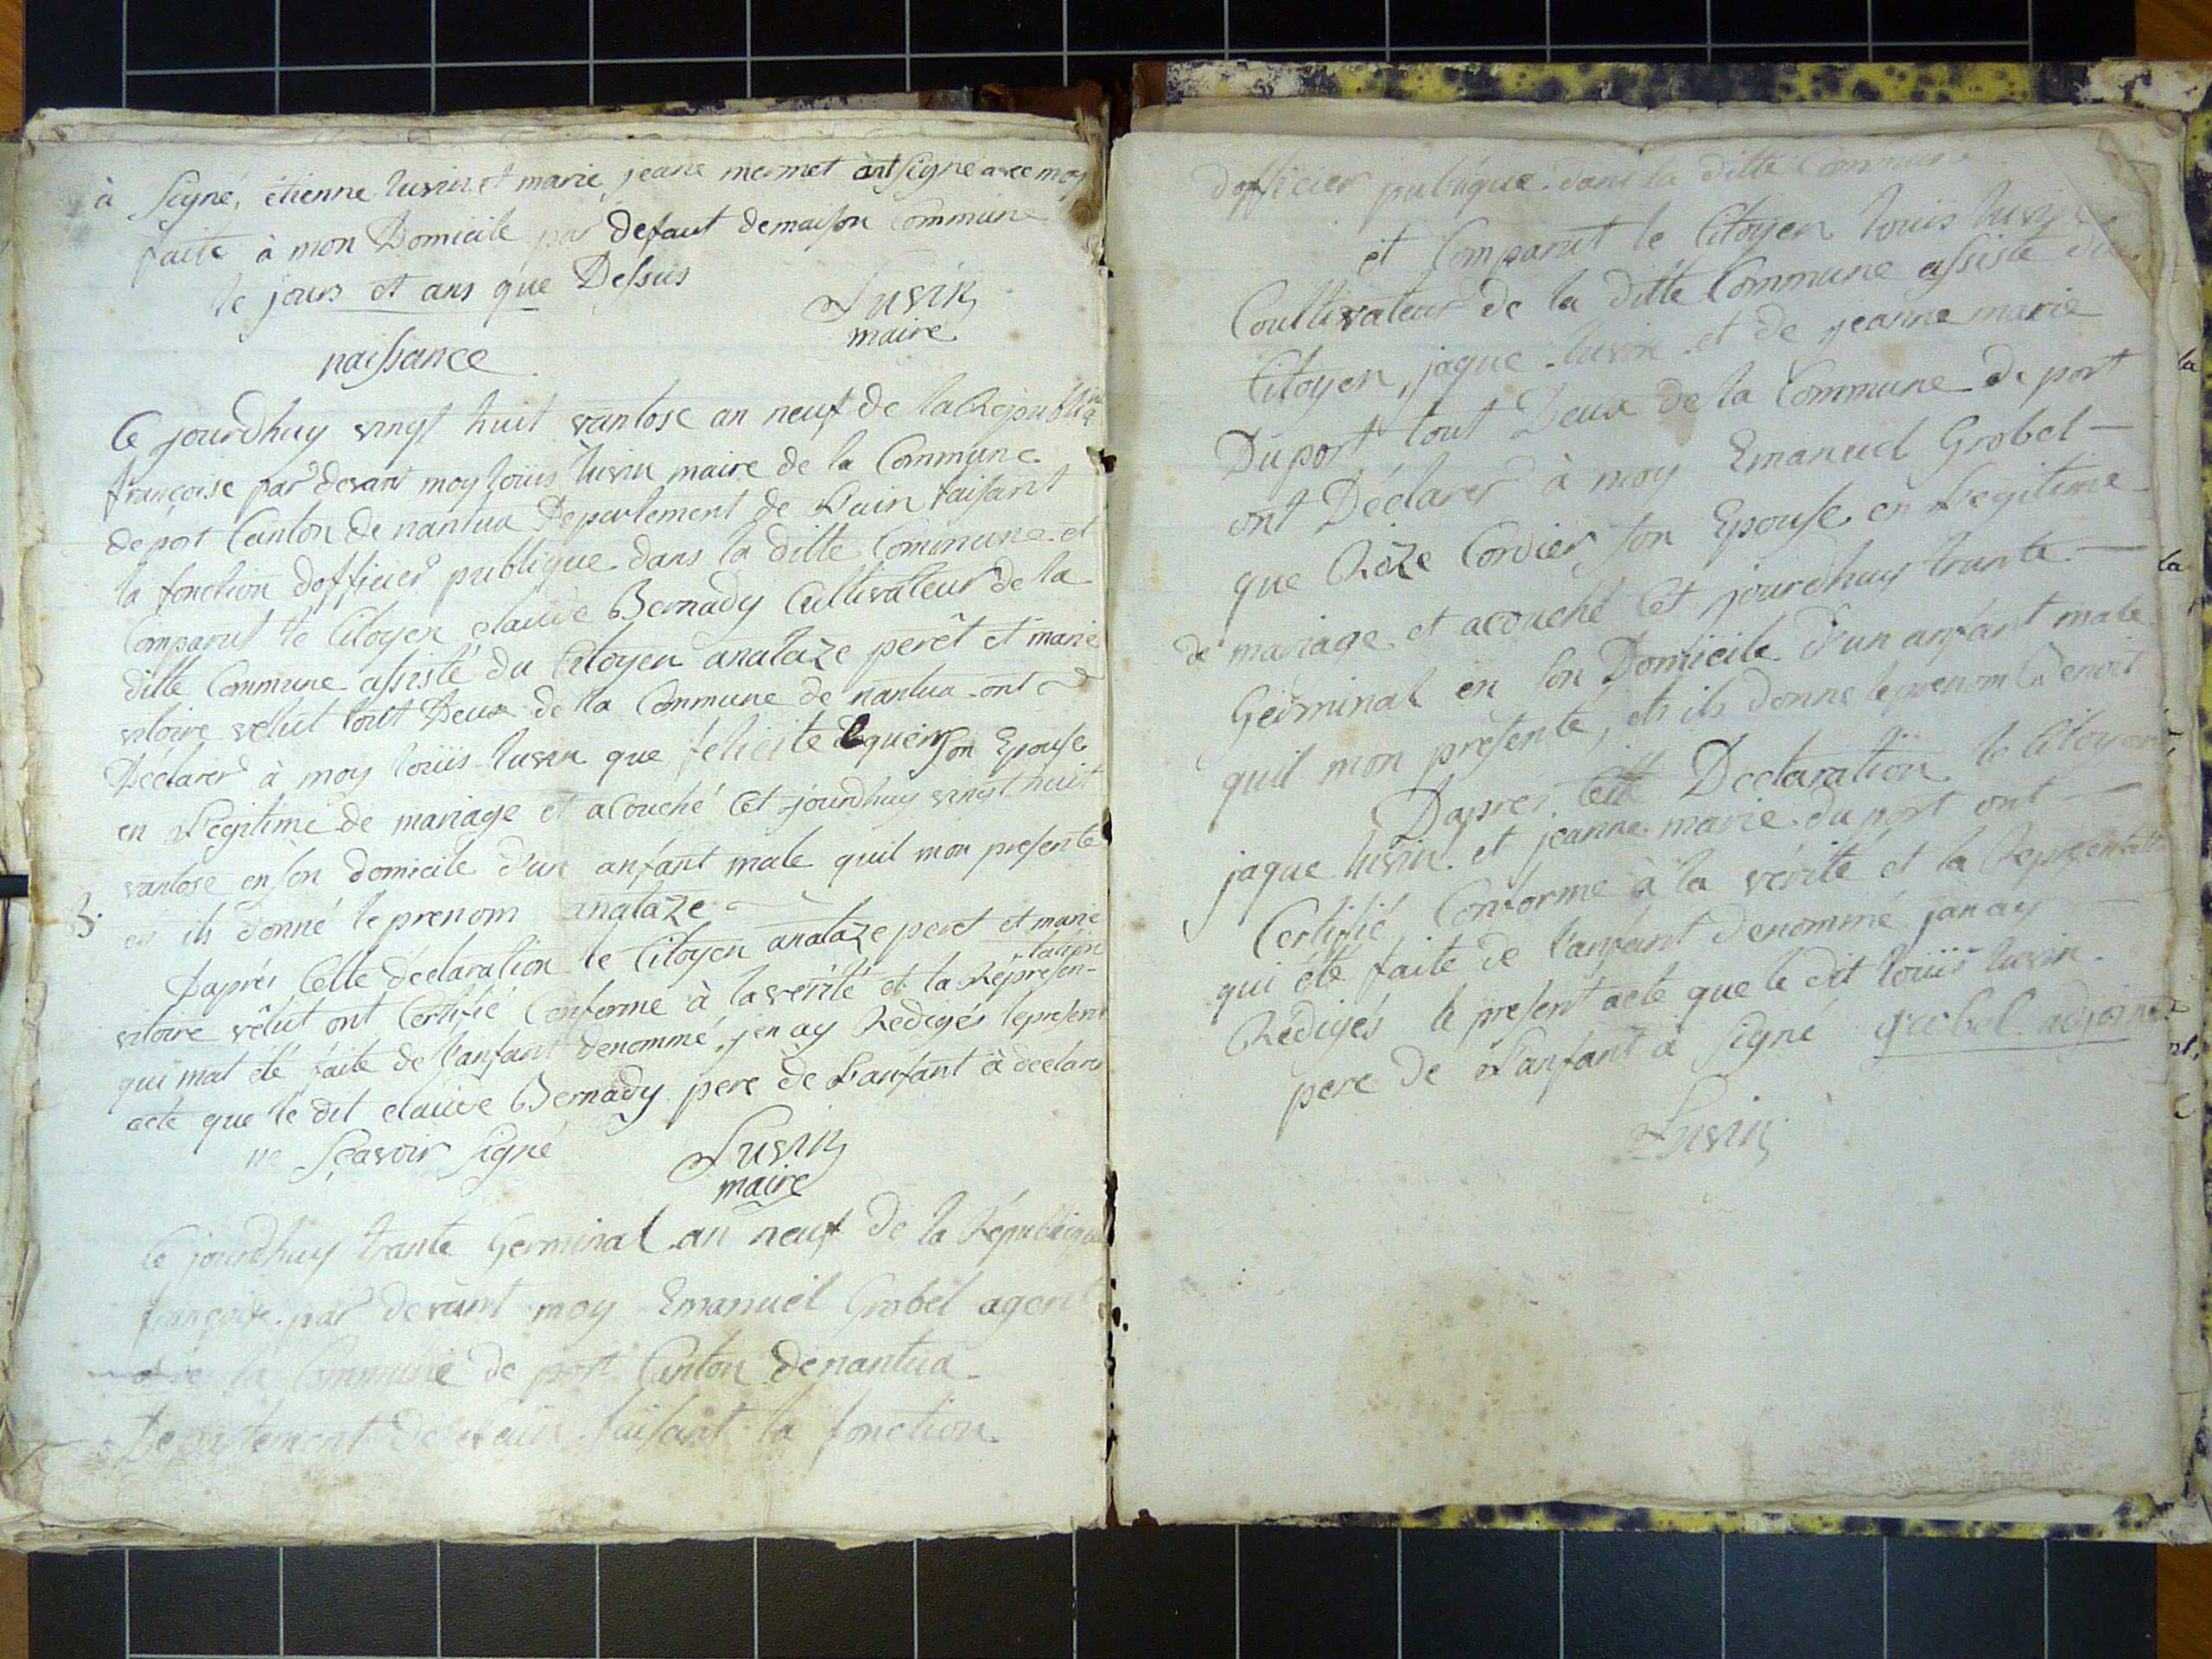 à Signé, étienne luvin et marie jeane mermet ont Signé avec moy
faite à mon Domicile par defaut demaison Commune
le jours et ans que Dessus
Luvin
maire
naissance
Ce jourdhuy vingt huit vantose an neuf de la Republique
françoise par devant moy louis luvin maire de la Commune
de port Canton de nantua Departement de Lain faisant
la fonction dofficier publique dans la ditte Commune et
Comparut le Citoyen claude Bernady Cultivateur de la
ditte Commune assisté du Citoyen anataze perêt et marie
vitoire velut tout Deux de la Commune de nantua ont
Déclarer à moy loüis luvin que felicite son Epouse
en Légitime de mariage et acouché Cet jourdhuy vingt huit
vantose en son domicile d'un anfant male quil mon presente
B. ils donné le prenom anataze
Daprés Cette déclaration le Citoyen anataze peret et marie
vitoire vélut ont Certifié Conforme à la vérité et la Répresen-
tation
qui mat été faite de l'anfant denommé, jen ay Redigés lepresent
acte que le dit claude Bernady pere de Lanfant à declare
ne Sçavoir Signé
Luvin
maire
Ce jourdhuy trante Germinal an neuf de la République
françoise par devant moy Emanuel Grobel agent
la Commune de port Canton denantua
Departement de Lain faisant la fonction
dofficier publique dans la ditte Commune
et Comparut le Citoyen louis luvin
Coultivateur de la ditte Commune assiste du
Citoyen jaque luvin et de jeanne marie
Duport tout Deux de la Commune de port
ont Déclarer à moy Emanuel Grobel
que Roze Cordier son Epouse en Legitime
de mariage et acouché Cet jourdhuy trante
Germinal en son Domicile d'un anfant male
quil mon presente, ils donne leprenom Benoit
Daprés Cette Declaration le Citoyen
jaque luvin et jeanne marie duport ont
Certifié Conforme à la vérité et la Representation
qui été faite de l'anfant denommé janay
Redigés le present acte que le dit loüis luvin
pere de Lanfant à Signé grobel adjoint
Luvin